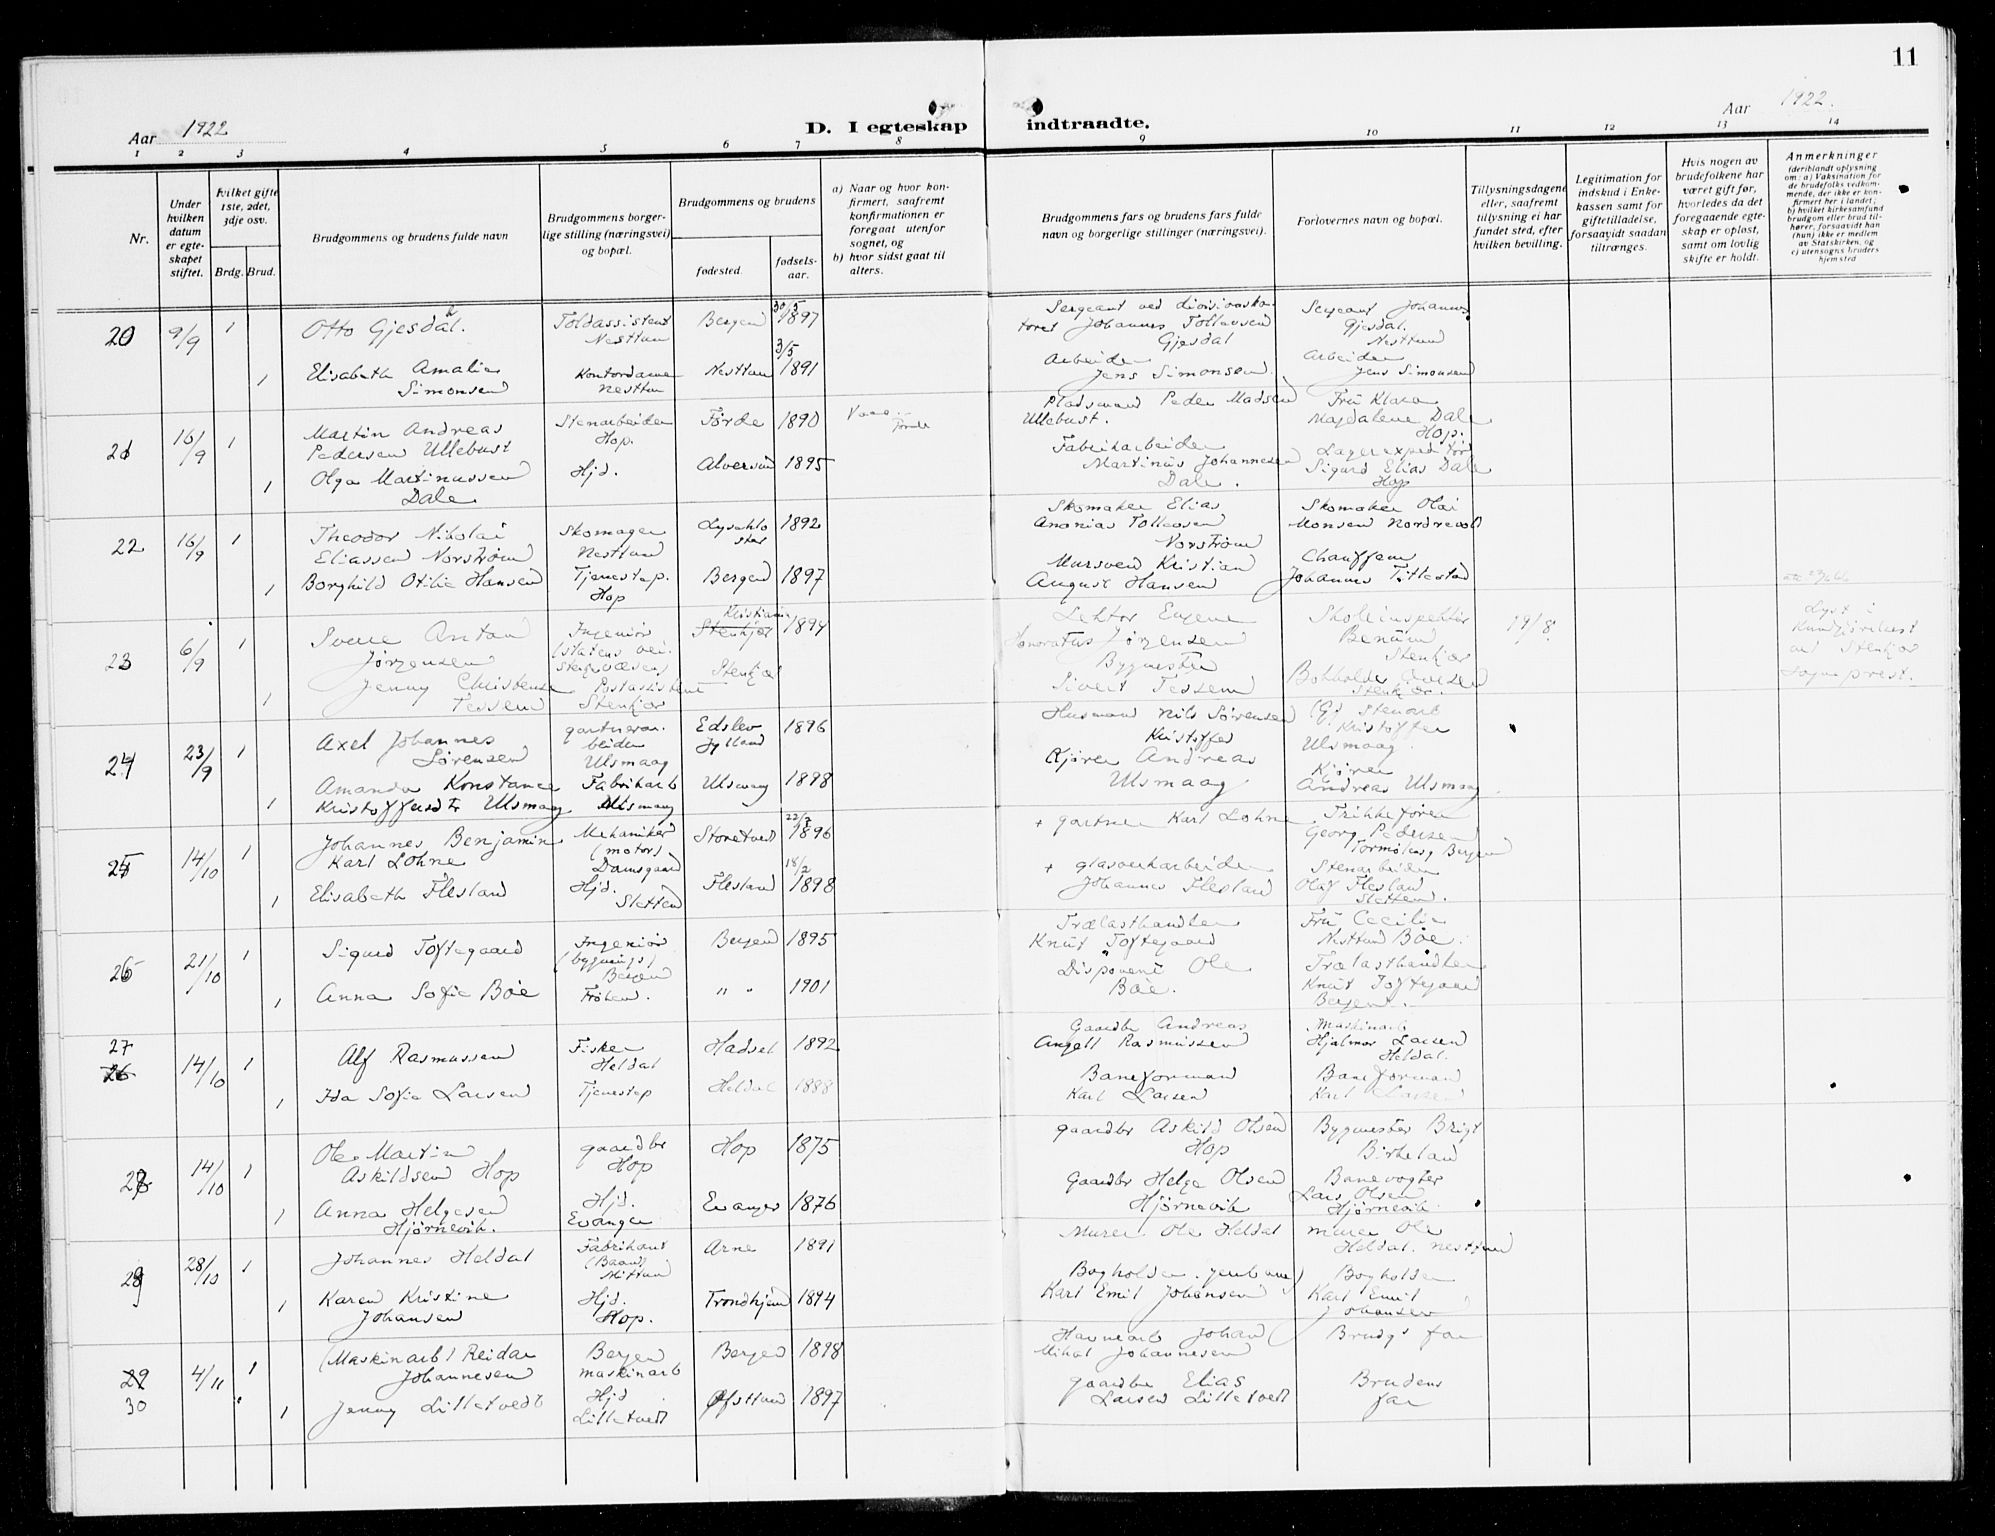 11
Aar 1922
D. I egteskap indtraadte.
Aar 1922.
1 2 3 4 5 6 7 8 9 10 11 12 13 14
Nr.
Under hvilken datum er egteskapet stiftet.
Hvilket gifte 1ste, 2det, 3dje osv.
Brdg. Brud.
Brudgommens og brudens fulde navn
Brudgommens borgerlige stilling (næringsvei) og bopæl.
Brudgommens og brudens
fødested.
fødselsaar.
a) Naar og hvor konfirmert, saafremt konfirmationen er foregaat utenfor sognet, og
b) hvor sidst gaat til alters.
Brudgommens fars og brudens fars fulde navn og borgerlige stillinger (næringsvei).
Forlovernes navn og bopæl.
Tillysningsdagene eller, saafremt tillysning ei har fundet sted, efter hvilken bevilling.
Legitimation for indskud i Enkekassen samt for giftetilladelse, forsaavidt saadan tiltrænges.
Hvis nogen av brudefolkene har været gift før, hvorledes da det foregaaende egteskap er opløst, samt om lovlig skifte er holdt.
Anmerkninger (deriblandt oplysning om: a) Vaksination for de brudefolks vedkommende, der ikke er konfirmert her i landet; b) hvilket kirkesamfund brudgom eller brud tilhører, forsaavidt han (hun) ikke er medlem av Statskirken, og c) utensogns bruders hjemsted
20 9/9 1 Otto Gjesdal. Toldassistent Nesttun Bergen 30/5 1897 Sergeant ved divisionskontoret Johannes Tollevsen Gjesdal Sergeant Johannes Gjesdal. Nesttun
1 Elisabeth Amalie Simonsen Kontordame Nesttun Nesttun 3/5 1891 Arbeider Jens Simonsen. Arbeider Jens Simonsen
21 16/9 1 Martin Andreas Pedersen Ullebust Stenarbeider Hop. Førde 1890 Pladsmand Peder Madsen Ullebust. Fru Klara Magdalene Dale Hop.
1 Olga Martinussen Dale Hjd. Alversund 1895 Fabrikarbeider Martinus Johannesen Dale. Lagerexpeditør Sigurd Elias Dale Hop
22 16/9 1 Theodor Nikolai Eliassen Norstrøm Skomager Nesttun 1892 Skomaker Elias Ananias Tollevsen Norstrøm Skomaker Olai Monsen Nordrevoll
1 Borghild Otilie Hansen Tjenestep. Hop Bergen 1897 Mursvend Kristian August Hansen Chauffeur Johannes Tittestad
23 6/9 1 Svere Anton Jørgensen Ingeniør (statens vei Kristiania Stenkjær 1894 Lektor Eugene Honoratus Jørgensen Skoleinspektør Stenkjær 19/8. Lyst i
1 Jenny Christense Tessem Postassistent Stenkjær Stenkjær Bygmester Sivert Tessem Bokholder Stenkjær. av Stenkjær sogneprest.
24 23/9 1 Axel Johannes Sørensen gartnerarbeider Ulsmaag Edslev Jylland 1896 Husmand Nils Sørensen Kristoffer Stenarb Kristoffer Ulsmaag.
1 Amanda Konstance Kristoffersdtr Ulsmaag Fabrikarb Ulsmaag Ulsmaag 1898 Kjører Andreas Ulsmaag Kjører Andreas Ulsmaag
25 14/10 1 Johannes Benjamin Karl Lohne Mekaniker (motor) Damsgaard Storetvedt 22/7 1896 + gartner Karl Lohne Trikkefører Georg Pedersen Bergen
1 Elisabeth Flesland Hjd. Sletten Flesland 18/2 1898 + glasverkarbeider Johannes Flesland Stenarbeider Olaf Flesland Sletten.
26 21/10 1 Sigurd Toftegaard Ingeniør (bygnings) Bergen Bergen 1895 Trælasthandler Knut Toftegaard Fru Cecilie Nesttun Bøe.
1 Anna Sofie Bøe Frøken. " " 1901 Disponent Ole Bøe. Trælasthandler Knut Toftegaard Bergen.
27 26 14/10 1 Alf Rasmussen Fisker Heldal Hadsel 1892 Gaardbr Andreas Angell Rasmussen Maskinarb Hjalmar Larsen Heldal.
1 Ida Sofie Larsen Tjenestep Heldal 1888 Baneformand Karl Larsen Baneformand Karl Larsen
28 14/10 1 Ole Martin Askildsen Hop gaardbr Hop Hop 1875 gaardbr Askild Olsen Hop Bygmester Brigt Birkeland
1 Anna Helgesen Hjørnevik. Hjd. Evanger Evanger 1876 Gaardbr Helge Olsen Hjørnevik Banevogter Lars Olsen Hjørnevik.
29 28/10 1 Johannes Heldal Fabrikant (Baand) Arne 1891 Murer Ole Heldal murer Ole Heldal. nesttun
1 Karen Kristine Johansen Hjd. Hop. Trondhjem 1894 Bogholder (jernbane) Karl Emil Johansen Bogholder Karl Emil Johansen
29 30 4/11 1 (Maskinarb) Reidar Johannesen Bergen maskinarb Bergen 1898 Havnearb Johan Mikal Johannesen Brudgs far
1 Jenny Lilletvedt Hjd. Lilletvedt 1897 gaardbr Elias Larsen Lilletvedt Brudens far